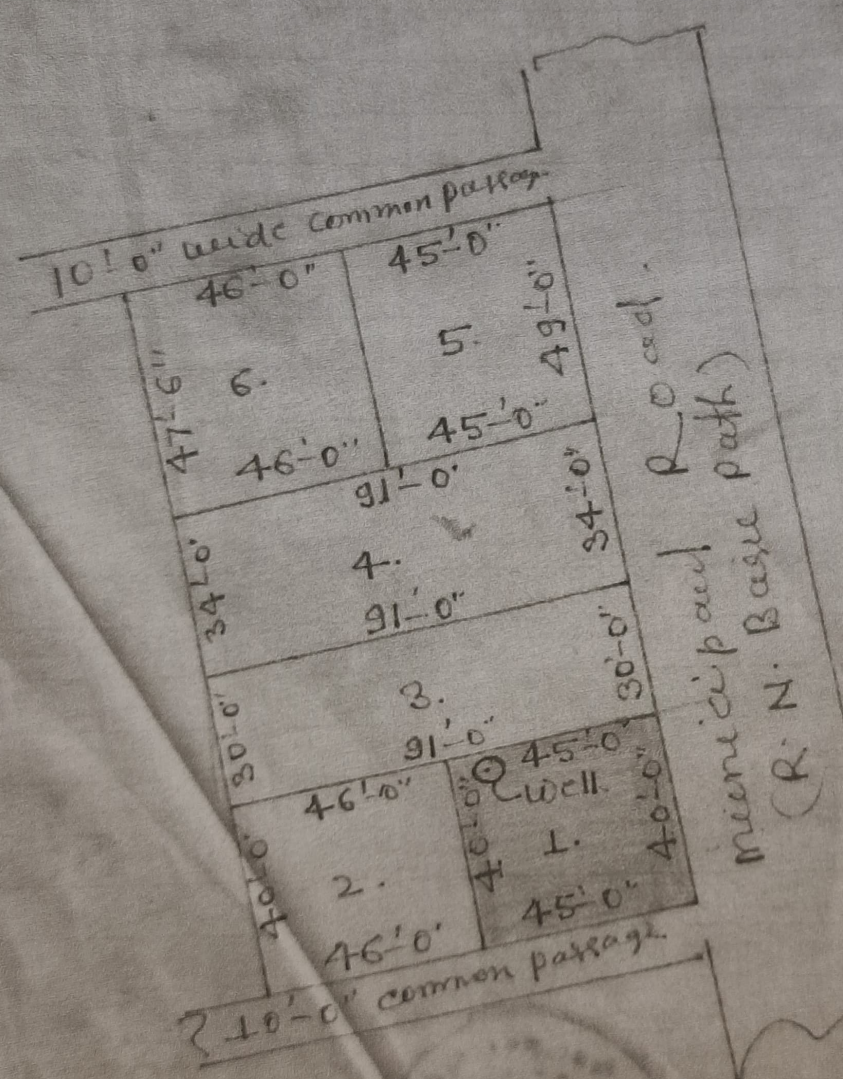 10'-0" wide common passage
46'-0"
45'-0"
47'-6"
6.
5.
49'-0"
46'-0"
45'-0"
91'-0"
34'-0"
4.
34'-0"
91'-0"
30'-0"
3.
30'-0"
91'-0"
46'-0"
45'-0"
well
40'-0"
2.
40'-0"
1.
40'-0"
46'-0"
45'-0"
10'-0" common passage
Municipal Road.
(R. N. Basu path)